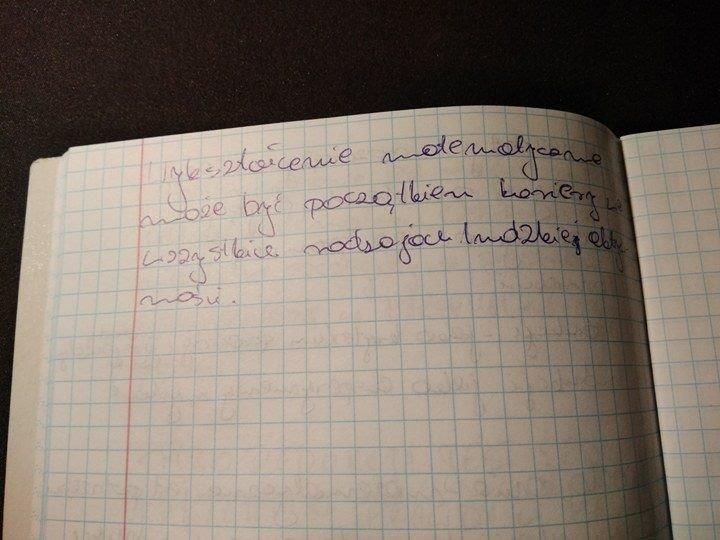 Wykształcenie matematyczne
może być początkiem kariery we
wszystkich rodzajach ludzkiej akty
ności.